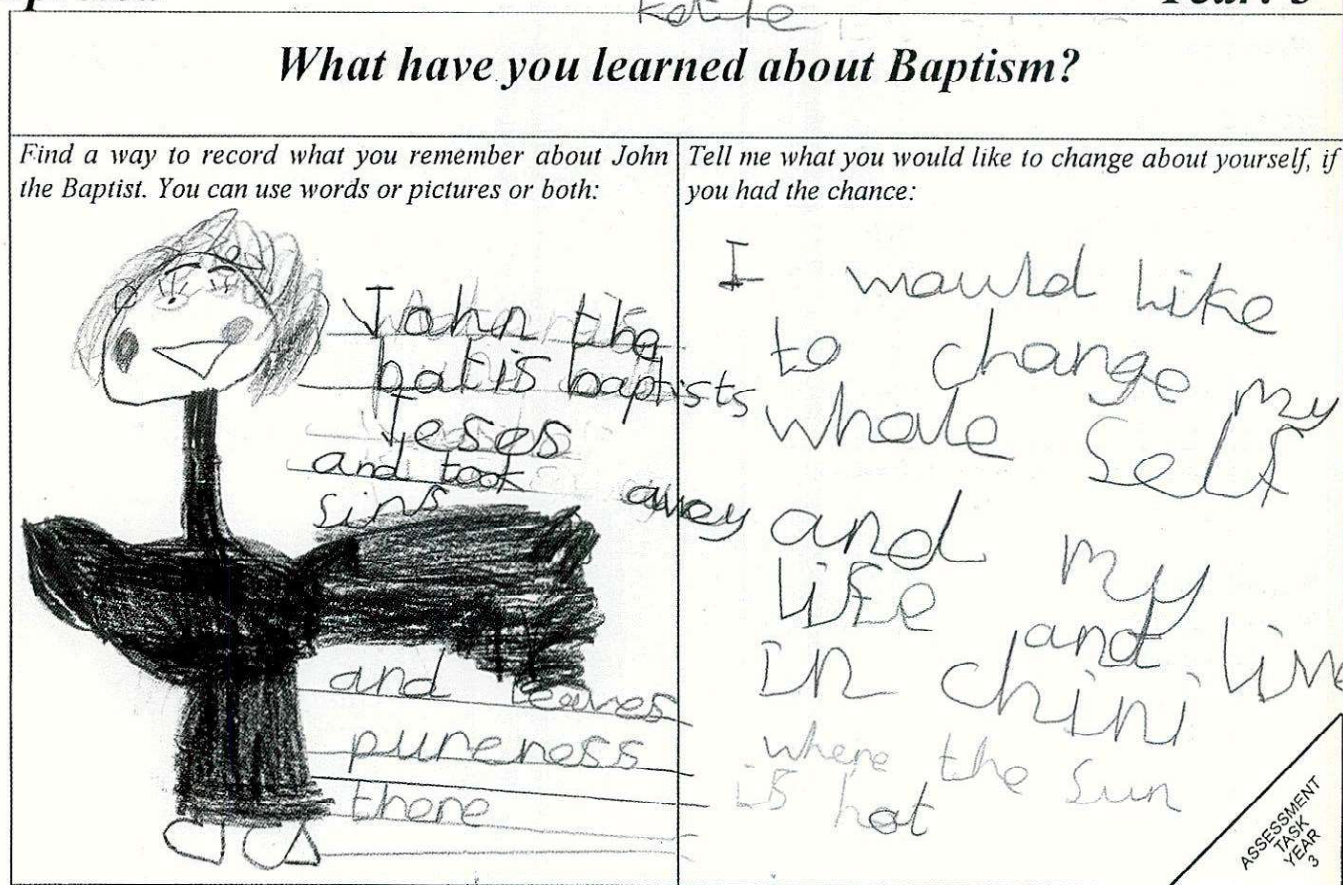 Katie
What have you learned about Baptism?
Find a way to record what you remember about John
the Baptist. You can use words or pictures or both:
John the
batis baptists
Jeses
and took away
sins
and leaves
pureness
there
Tell me what you would like to change about yourself, if
you had the chance:
I would like
to change my
whole self
and my
life and live
in chini
where the sun
is hot
ASSESSMENT
TASK
YEAR
3